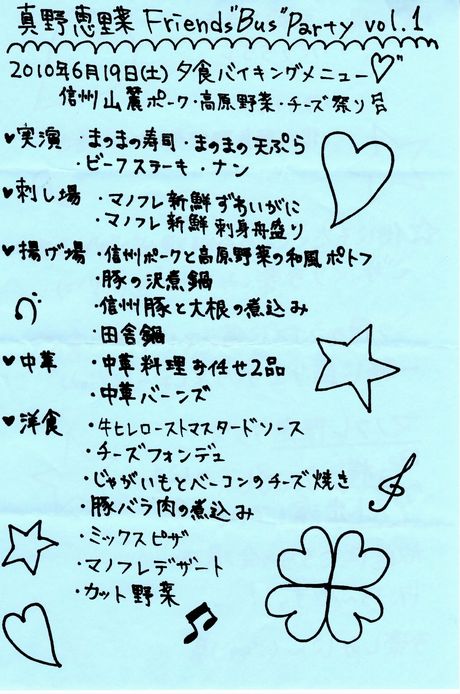 真野恵里菜 Friends"Bus"Party vol.1
2010年6月19日(土) 夕食バイキングメニュー
信州山麓ポーク・高原野菜・チーズ祭り
♥実演 ・まのまの寿司・まのまの天ぷら
・ビーフステーキ・ナン
♥刺し場 ・マノフレ新鮮ずわいがに
・マノフレ新鮮刺身舟盛り
♥揚げ場 ・信州ポークと高原野菜の和風ポトフ
・豚の沢煮鍋
・信州豚と大根の煮込み
・田舎鍋
♥中華 ・中華料理お任せ2品
・中華バーンズ
♥洋食 ・牛ヒレローストマスタードソース
・チーズフォンデュ
・じゃがいもとベーコンのチーズ焼き
・豚バラ肉の煮込み
・ミックスピザ
・マノフレデザート
・カット野菜